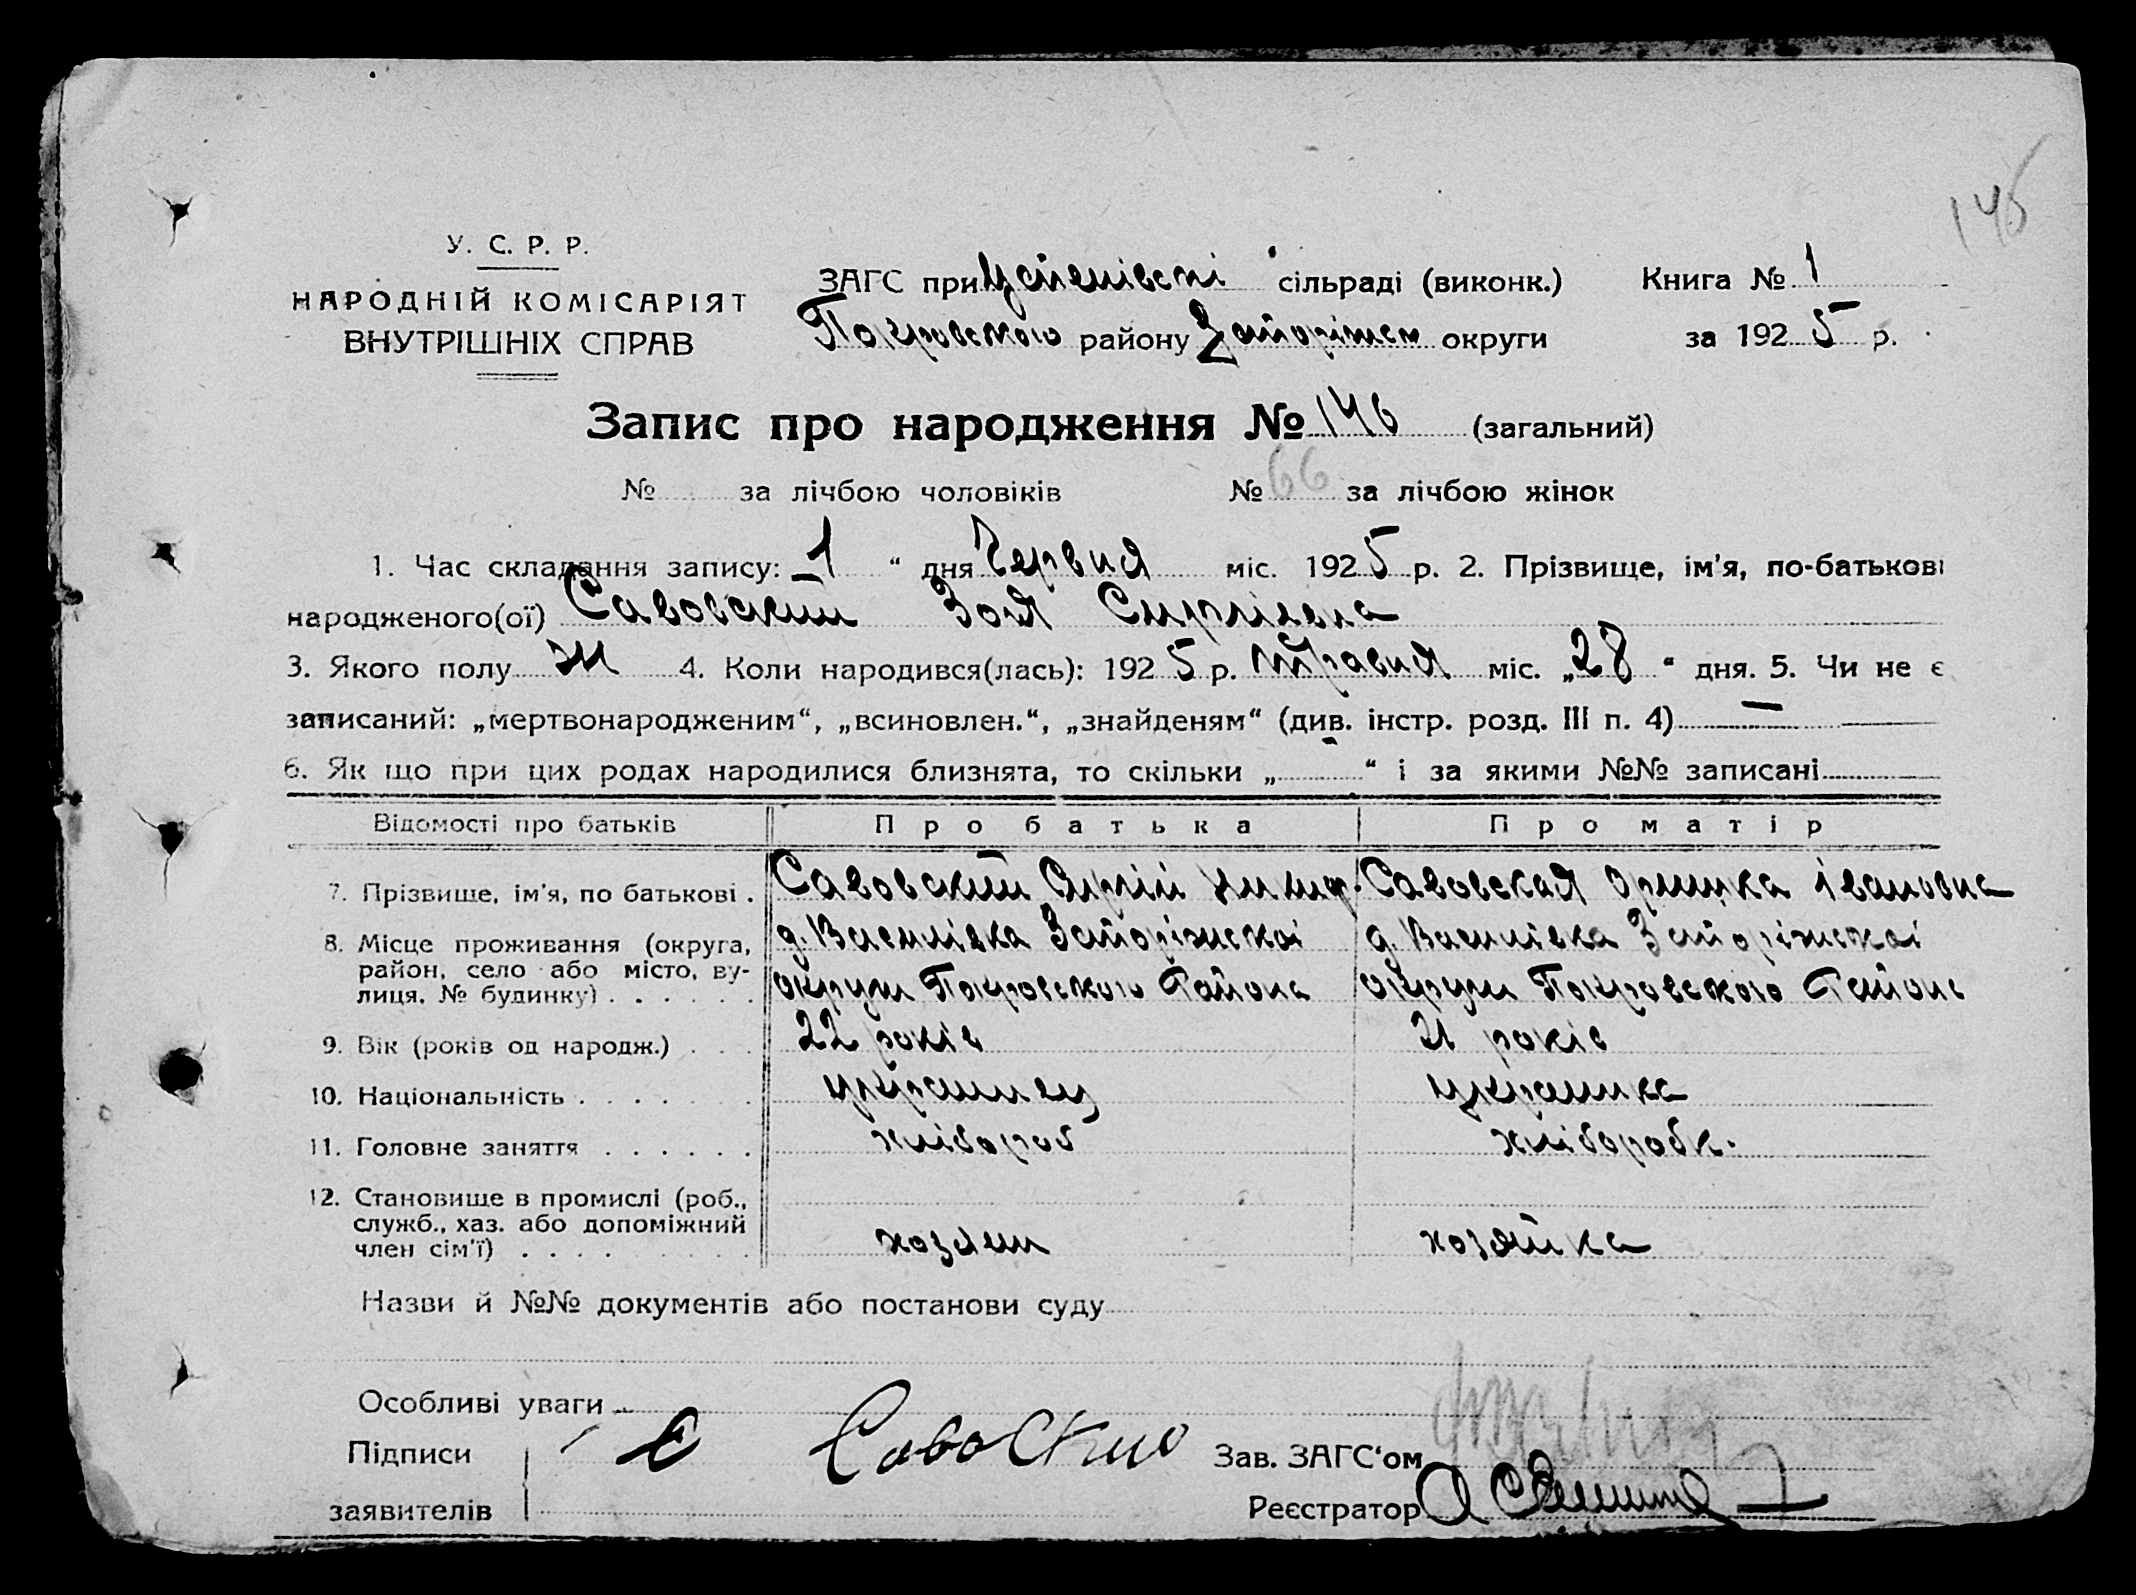 145
У. С. Р. Р.
НАРОДНІЙ КОМІСАРІЯТ
ВНУТРІШНІХ СПРАВ
ЗАГС при Успенівскі сільраді (виконк.) Книга № 1
Покровського району Запоріжск округи за 1925 р.
Запис про народження № 146 (загальний)
№ за лічбою чоловіків № 66 за лічбою жінок
1. Час складання запису: 1 “ дня Червня міс. 1925 р. 2. Прізвище, ім’я, по-батькові
народженого(ої) Савовский Зоя Сиргіївна
3. Якого полу ж 4. Коли народився(лась): 1925 р. Травня міс. „28“ дня. 5. Чи не є
записаний: „мертвонародженим“, „всиновлен.“, „знайденям“ (див. інстр. розд. III п. 4) —
6. Як що при цих родах народилися близнята, то скільки „ “ і за якими №№ записані
Відомості про батьків Про батька Про матір
7. Прізвище, ім’я, по батькові . Савовский Сиргій Савовская Оришка Івановна
8. Місце проживання (округа, район, село або місто, вулиця, № будинку) . . . . . . д. Василівка Запоріжскоі д. Василівка Запоріжскоі
округи Покровського Района округи Покровського Района
9. Вік (років од народж.) . . . 22 років 21 років
10. Національність . . . . . . . украинец украинка
11. Головне заняття . . . . . . хлібороб хліборобк.
12. Становище в промислі (роб., служб., хаз. або допоміжний член сім’ї) . . . . хозяин хозяйка
Назви й №№ документів або постанови суду
Особливі уваги
Підписи С Савоский Зав. ЗАГС‘ом
заявителів Реєстратор